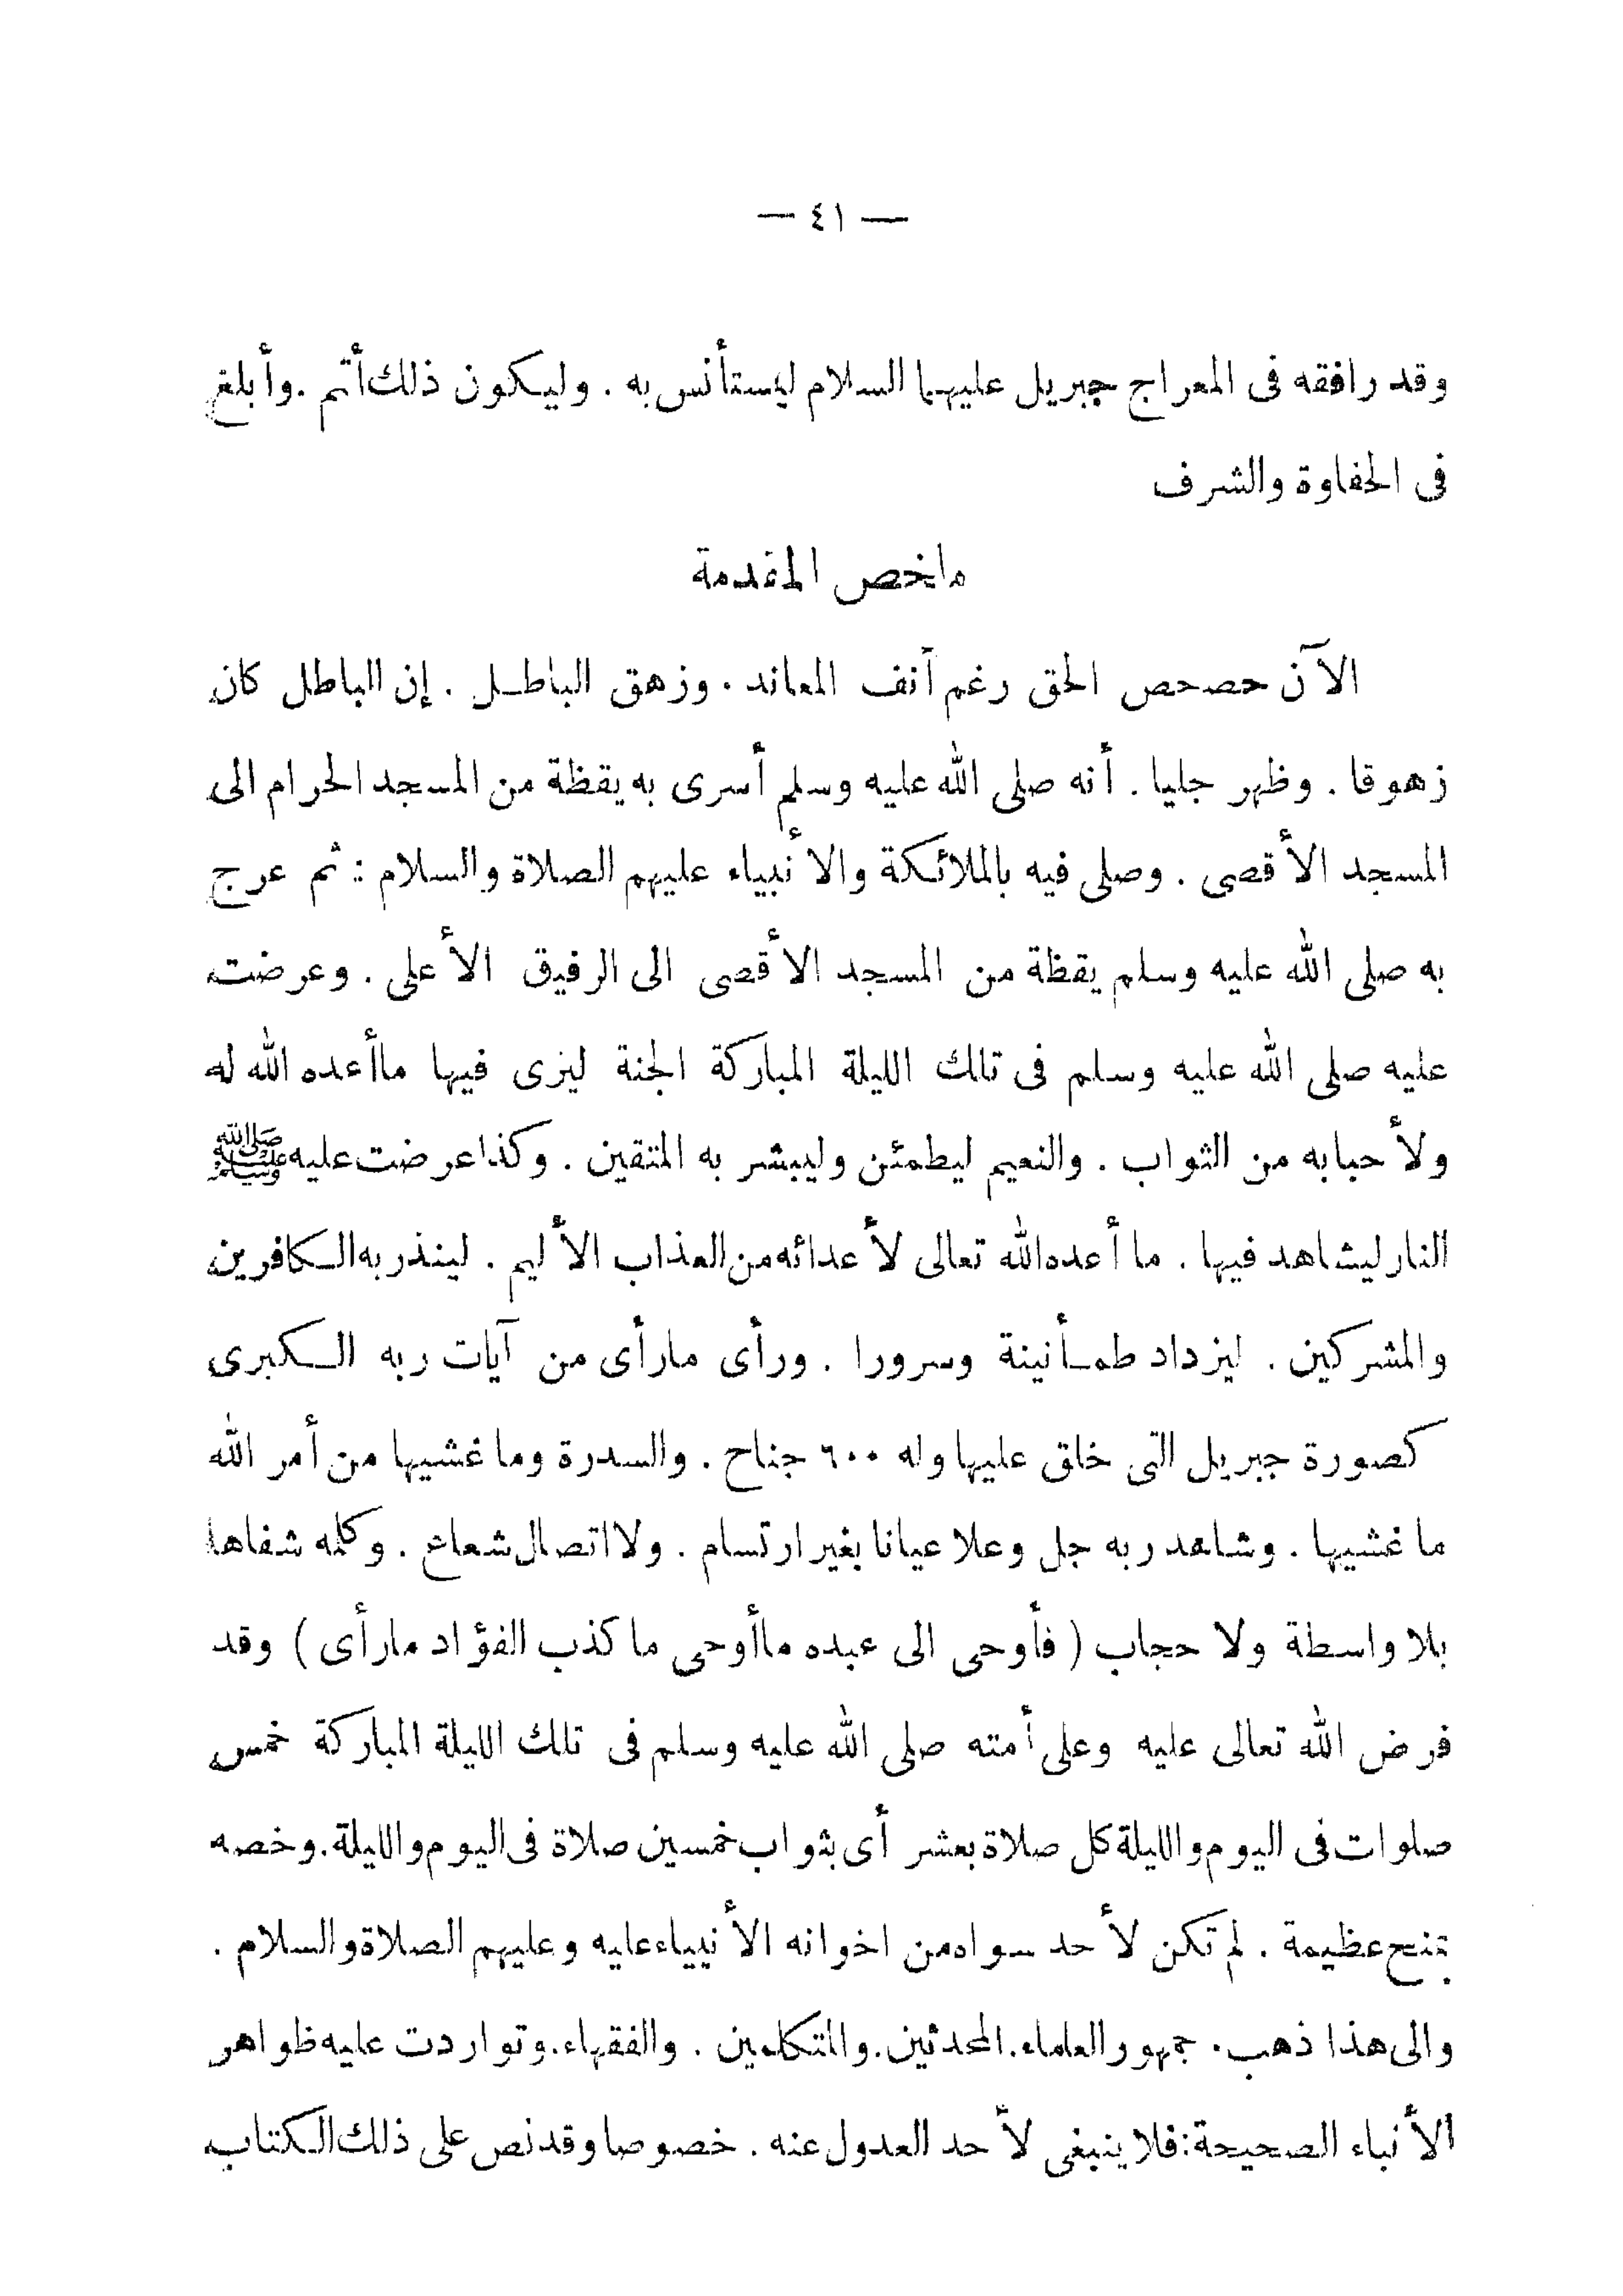 — ٤١ —
وقد رافقه فى المعراج جبريل عليهما السلام ليستأنس به . وليكون ذلك أتم . وأبلغ
فى الحفاوة والشرف
ملخص المقدمة
الآن حصحص الحق رغم أنف المعاند . وزهق الباطل . إن الباطل كان
زهوقا . وظهر جليا . أنه صلى الله عليه وسلم أسرى به يقظة من المسجد الحرام الى
المسجد الأقصى . وصلى فيه بالملائكة والأنبياء عليهم الصلاة والسلام : ثم عرج
به صلى الله عليه وسلم يقظة من المسجد الأقصى الى الرفيق الأعلى . وعرضت
عليه صلى الله عليه وسلم فى تلك الليلة المباركة الجنة ليرى فيها ماأعده الله له
ولأحبابه من الثواب . والنعيم ليطمئن وليبشر به المتقين . وكذا عرضت عليه ﷺ
النار ليشاهد فيها . ما أعده الله تعالى لأعدائه من العذاب الأليم . لينذر به الكافرين
والمشركين . ليزداد طمأنينة وسرورا . ورأى مارأى من آيات ربه الكبرى
كصورة جبريل التى خلق عليها وله ٦٠٠ جناح . والسدرة وما غشيها من أمر الله
ما غشيها . وشاهد ربه جل وعلا عيانا بغير ارتسام . ولا اتصال شعاع . وكلمه شفاها
بلا واسطة ولا حجاب ( فأوحى الى عبده ماأوحى ما كذب الفؤاد مارأى ) وقد
فرض الله تعالى عليه وعلى أمته صلى الله عليه وسلم فى تلك الليلة المباركة خمس
صلوات فى اليوم والليلة كل صلاة بعشر أى بثواب خمسين صلاة فى اليوم والليلة . وخصه
بمنح عظيمة . لم تكن لأحد سواه من اخوانه الأنبياء عليه وعليهم الصلاة والسلام .
والى هذا ذهب . جمهور العلماء . المحدثين . والمتكلمين . والفقهاء . وتواردت عليه ظواهر
الأنباء الصحيحة : فلا ينبغى لأحد العدول عنه . خصوصا وقد نص على ذلك الكتاب